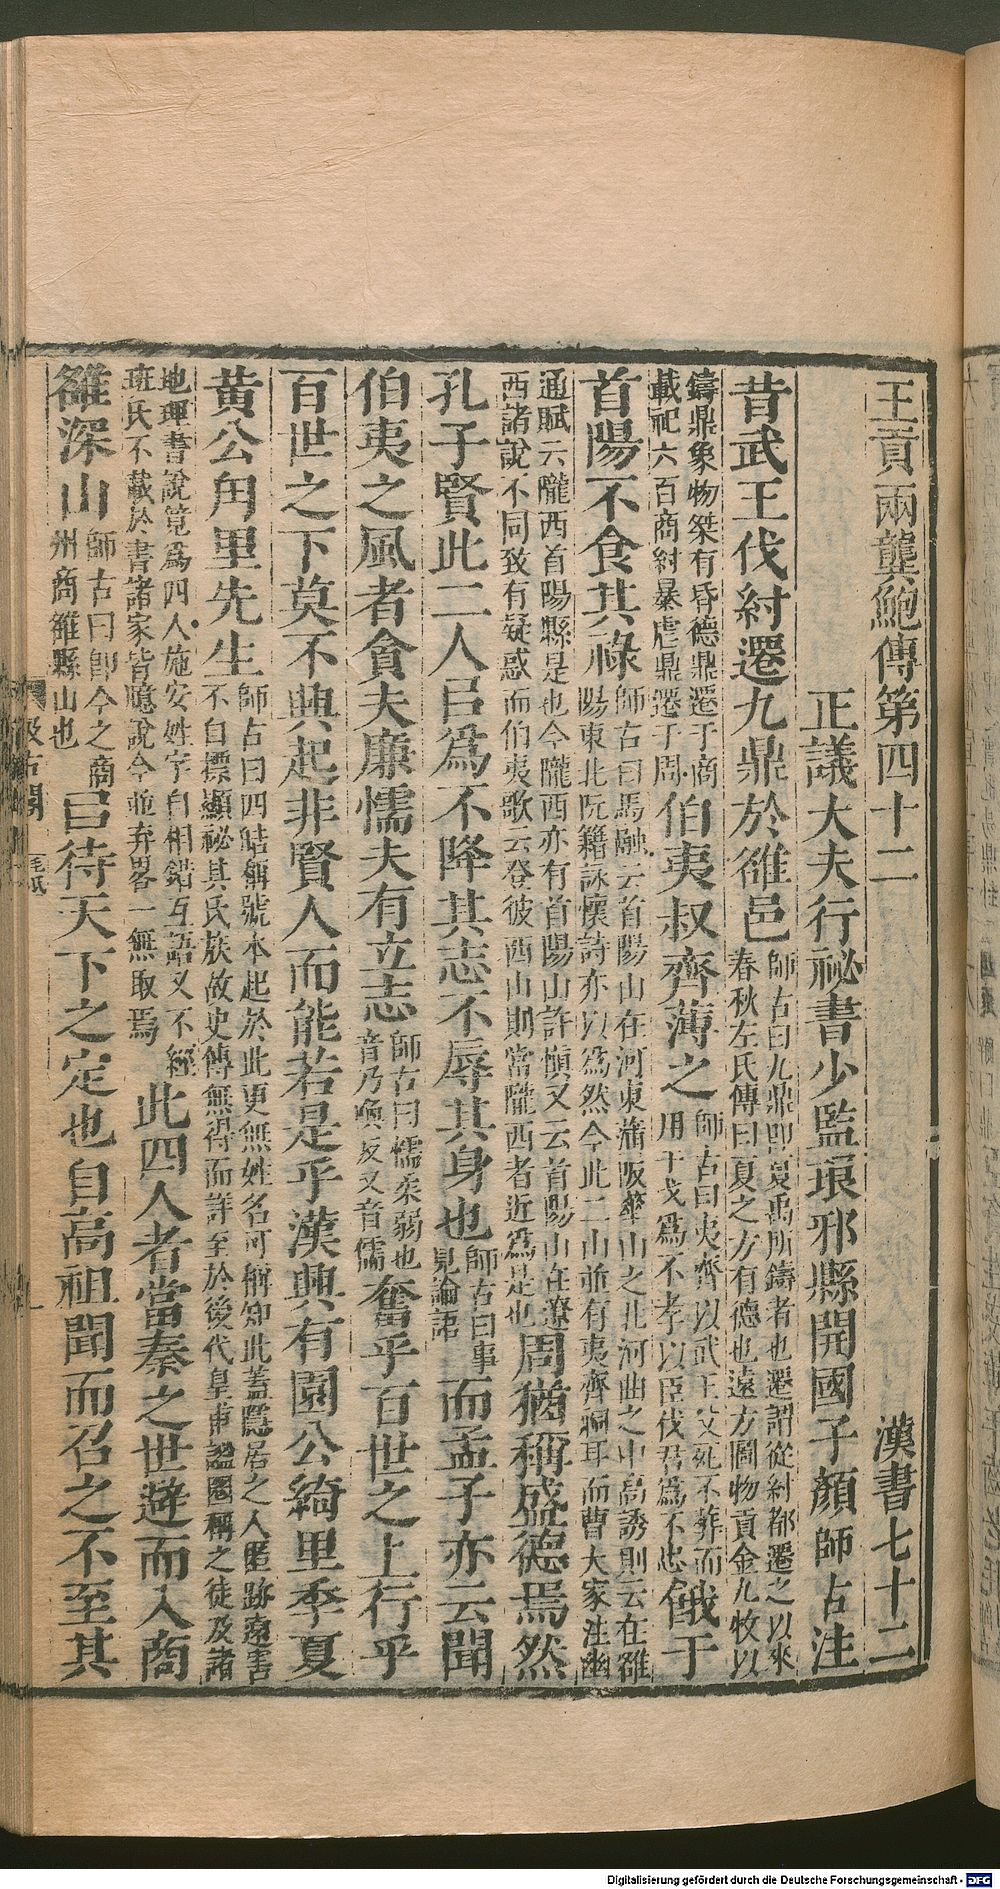 王貢兩龔鮑傳第四十二　漢書七十二
正議大夫行祕書少監琅邪縣開國子顏師古注
昔武王伐紂遷九鼎於雒邑師古曰九鼎即夏禹所鑄者也遷謂從紂都遷之以來春秋左氏傳曰夏之方有德也遠方圖物貢金九牧以
鑄鼎象物桀有昏德鼎遷于商載祀六百商紂暴虐鼎遷于周伯夷叔齊薄之師古曰夷齊以武王父死不葬而用干戈爲不孝以臣伐君爲不忠餓于
首陽不食其祿師古曰馬融云首陽山在河東蒲阪華山之北河曲之中高誘則云在雒陽東北阮籍詠懷詩亦以爲然今此二山並有夷齊祠耳而曹大家注幽
通賦云隴西首陽縣是也今隴西亦有首陽山許愼又云首陽山在遼西諸說不同致有疑惑而伯夷歌云登彼西山則當隴西者近爲是也周猶稱盛德焉然
孔子賢此二人㠯爲不降其志不辱其身也師古曰事見論語而孟子亦云聞
伯夷之風者貪夫廉懦夫有立志師古曰懦柔弱也音乃喚反又音儒奮乎百世之上行乎
百世之下莫不興起非賢人而能若是乎漢興有園公綺里季夏
黃公甪里先生師古曰四皓稱號本起於此更無姓名可稱知此蓋隱居之人匿跡遠害不自標顯祕其氏族故史傳無得而詳至於後代皇甫謐圈稱之徒及諸
地理書說竟爲四人施安姓字自相錯互語又不經班氏不載於書諸家皆臆說今並弃畧一無取焉此四人者當秦之世避而入商
雒深山師古曰卽今之商州商雒縣山也㠯待天下之定也自高祖聞而召之不至其
汲古閣
毛氏
Digitalisierung gefördert durch die Deutsche Forschungsgemeinschaft - DFG